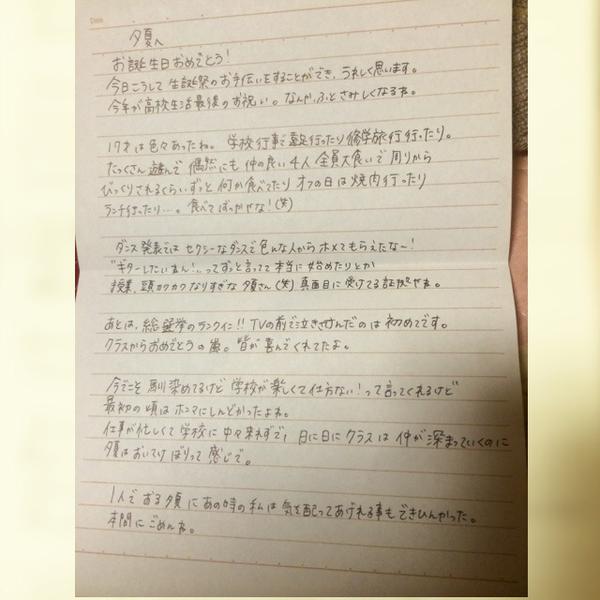 夕夏へ
お誕生日おめでとう!
今日こうして生誕祭のお手伝いをすることができ、うれしく思います。
今年が高校生活最後のお祝い。なんか、ふとさみしくなるね。
17才は色々あったね。学校行事で遠足行ったり修学旅行行ったり。
たっくさん遊んで偶然にも仲の良い4人全員大食いで周りから
びっくりされるくらいずっと何か食べてたりオフの日は焼肉行ったり
ランチ行ったり…。食べてばっかやな!(笑)
ダンス発表ではセクシーなダンスで色んな人からホメてもらえたな〜!
"ギターしたいねん!"ってずっと言ってて本当に始めたりとか
授業、頭カクカクなりすぎな夕夏さん(笑)真面目に受けてる証拠やね。
あとは、総選挙のランクイン!!TVの前で泣きさけんだのは初めてです。
クラスからおめでとうの嵐。皆が喜んでくれてたよ。
今でこそ馴染めてるけど学校が楽しくて仕方ない!って言ってくれるけど
最初の頃はホンマにしんどかったよね。
仕事が忙しくて学校に中々来れずで、日に日にクラスは仲が深まっていくのに
夕夏はおいてけぼりって感じで。
1人でおる夕夏にあの時の私は気を配ってあげれる事もできひんかった。
本間にごめんね。